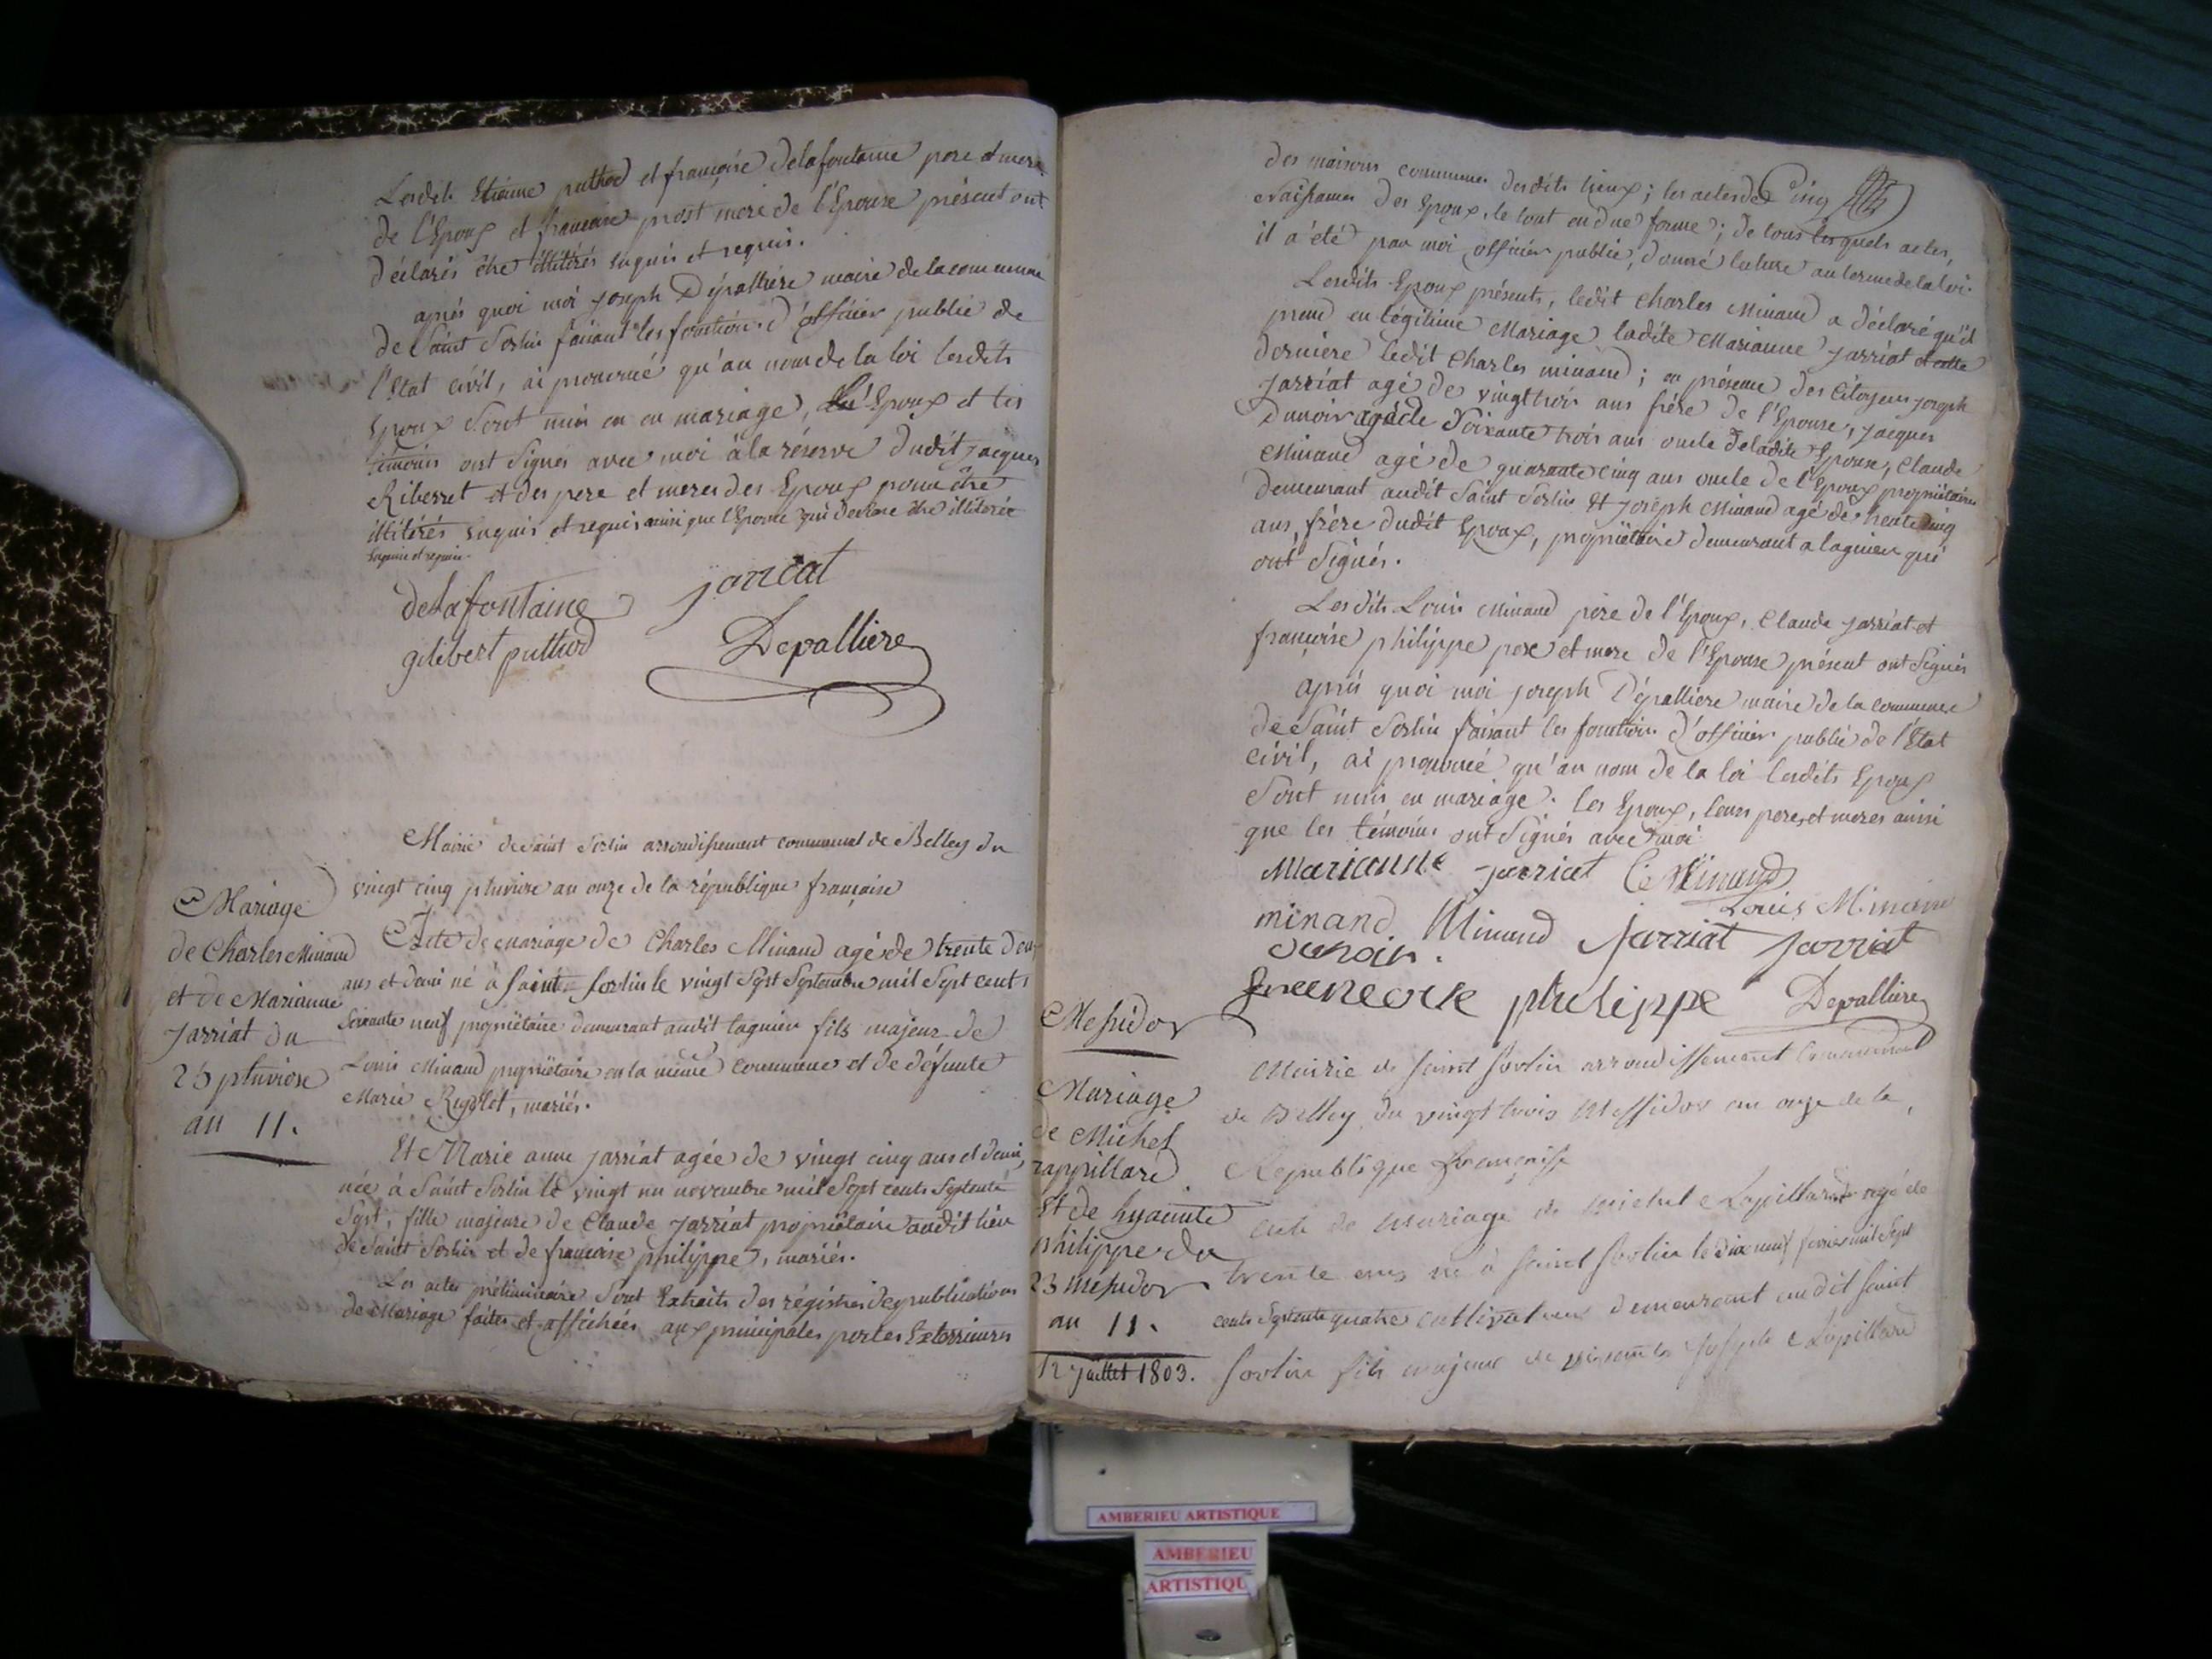 Lesdits Etienne puthod et françoise delafontaine pere et mere
de l'Epoux et francoise prost mere de l'Epouse présent ont
déclarés être illitérés enquis et requis.
après quoi moi joseph Dépallière maire de la commune
de Saint Sorlin faisant les fonctions d'officier public de
l'Etat civil, ai prononcé qu'au nom de la loi lesdits
Epoux sont unis en en mariage, Epoux et les
témoins ont signés avec moi à la réserve dudit jacques
Riberret et des pere et meres des Epoux pour être
illitérés enquis et requis ainsi que l'Epouse qui declare être illiterée
enquise et requise.
delafontaine jarriat
gilibert puthod Depalliere
Mairie de saint Sorlin arrondissement communal de Belley du
vingt cinq pluviose an onze de la république française
Mariage
de Charles Minand
et de Marianne
Jarriat du
25 pluviose
an 11.
Acte de mariage de Charles Minand agé de trente deux
ans et demi né à saint Sorlin le vingt sept septembre mil sept cents
soixante neuf propriétaire demeurant audit lagnieu fils majeur de
Louis Minand propriétaire en la même commune et de défunte
Marie Rigolet, mariés.
Et Marie anne jarriat agée de vingt cinq ans et demi,
née à Saint Sorlin le vingt un novembre mil sept cents septente
sept, fille majeure de Claude jarriat propriétaire audit lieu
de Saint Sorlin et de francoise philippe, mariés.
Les actes préliminaire sont Extraits des régistres de publications
de Mariage faites et affichées aux principales portes Exterrieures
des maisons communes desdits lieux; les actes de cinq
naissances des Epoux, le tout en due forme; de tous lesquels actes,
il a été par moi officier public, donné lecture au terme de la loi.
Lesdits Epoux présents, ledit Charles Minand a déclaré qu'il
prend en légitime Mariage ladite Marianne Jarriat et cette
derniere ledit Charles minand; en présence des Citoyens joseph
Jarriat agé de vingt trois ans frére de l'Epouse, jacques
Dunoir agé de soixante trois ans oncle de ladite Epouse, Claude
Minand agé de quarante cinq ans oncle de l'Epoux propriétaires
demeurant audit Saint Sorlin et joseph Minand agé de trente cinq
ans, frére dudit Epoux, propriétaire demeurant a lagnieu qui
ont signés.
Lesdits Louis Minand pére de l'Epoux, Claude Jarriat et
françoise philippe pere et mere de l'Epouse présent ont signés
après quoi moi joseph Dépalliere maire de la commune
de Saint Sorlin faisant les fonctions d'officier public de l'Etat
civil, ai prononcé qu'au nom de la loi lesdits Epoux
sont unis en mariage. les Epoux, leurs peres et meres ainsi
que les témoins ont signés avec moi
Marianne jarriat C Minand
Louis Minand
minand Minand Jarriat Jarriat
dunoir.
philippe Depalliere
Messidor
Mairie de saint Sorlin arrondissement communal
de Belley du vingt trois Messidor an onze de la
Republique française
Mariage
de Michel
rappillard
Et de hyacinte
philippe du
23 Messidor
an 11.
12 Juillet 1803.
acte de Mariage de Michel Rapillard agé de
trente ans né à saint Sorlin le dix neuf fevrier mil sept
cents septente quatre cultivateur demeurant audit saint
Sorlin fils majeur de Joseph Rapillard
AMBERIEU ARTISTIQUE
AMBERIEU
ARTISTIQU